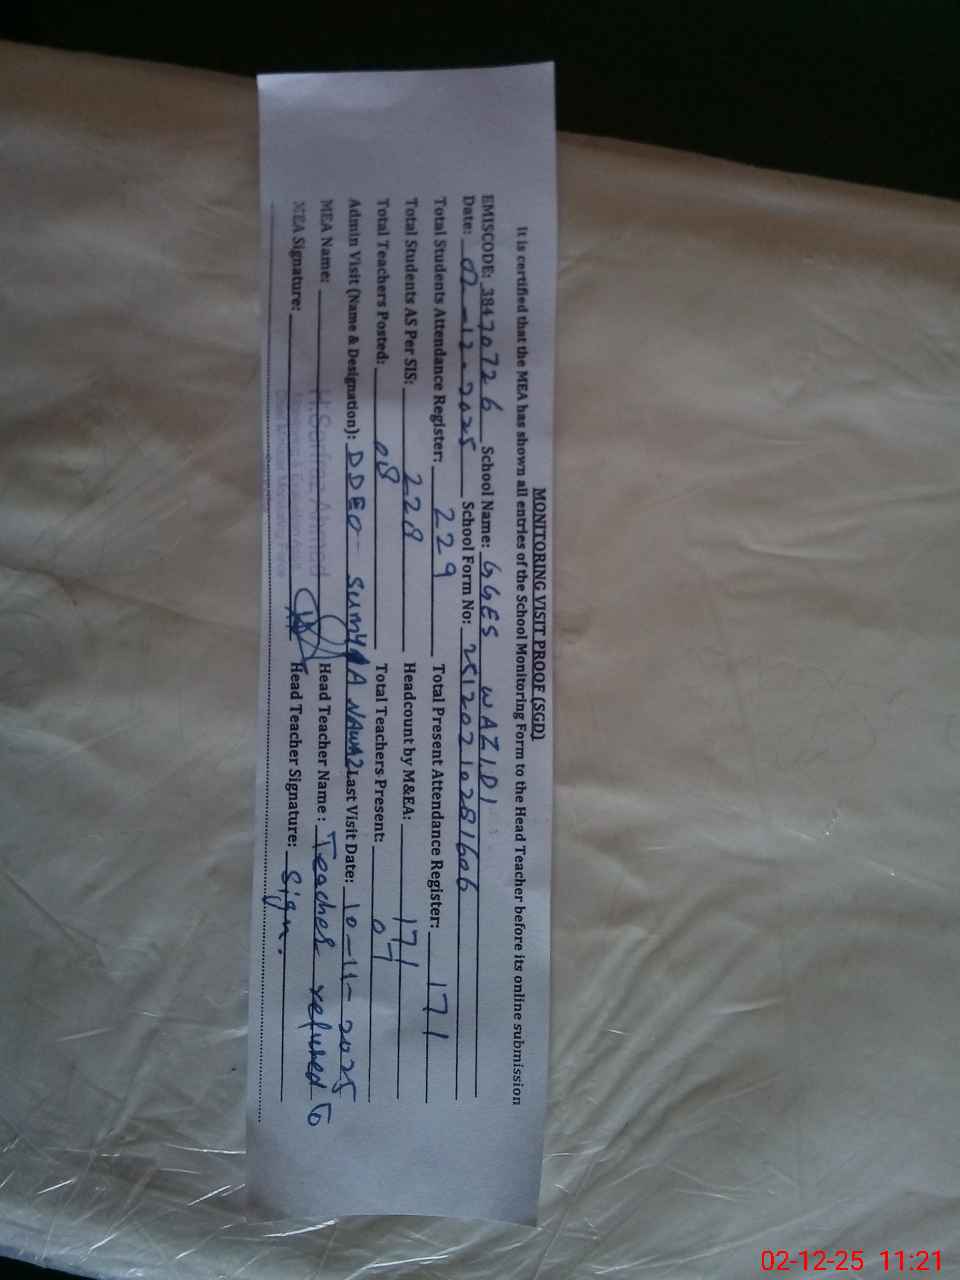 MONITORING VISIT PROOF (SGD)
It is certified that the MEA has shown all entries of the School Monitoring Form to the Head Teacher before its online submission
EMISCODE: 38470726 School Name: GGES WAZIDI
Date: 02-12-2025 School Form No: 25120210281606
Total Students Attendance Register: 229 Total Present Attendance Register: 171
Total Students AS Per SIS: 228 Headcount by M&EA: 171
Total Teachers Posted: 08 Total Teachers Present: 07
Admin Visit (Name & Designation): DDEO SUMYA NAWAZ Last Visit Date: 10-11-2025
MEA Name: H.Sarfraz Ahmad Head Teacher Name: Teacher refused To
MEA Signature: Head Teacher Signature: Sign.
02-12-25 11:21